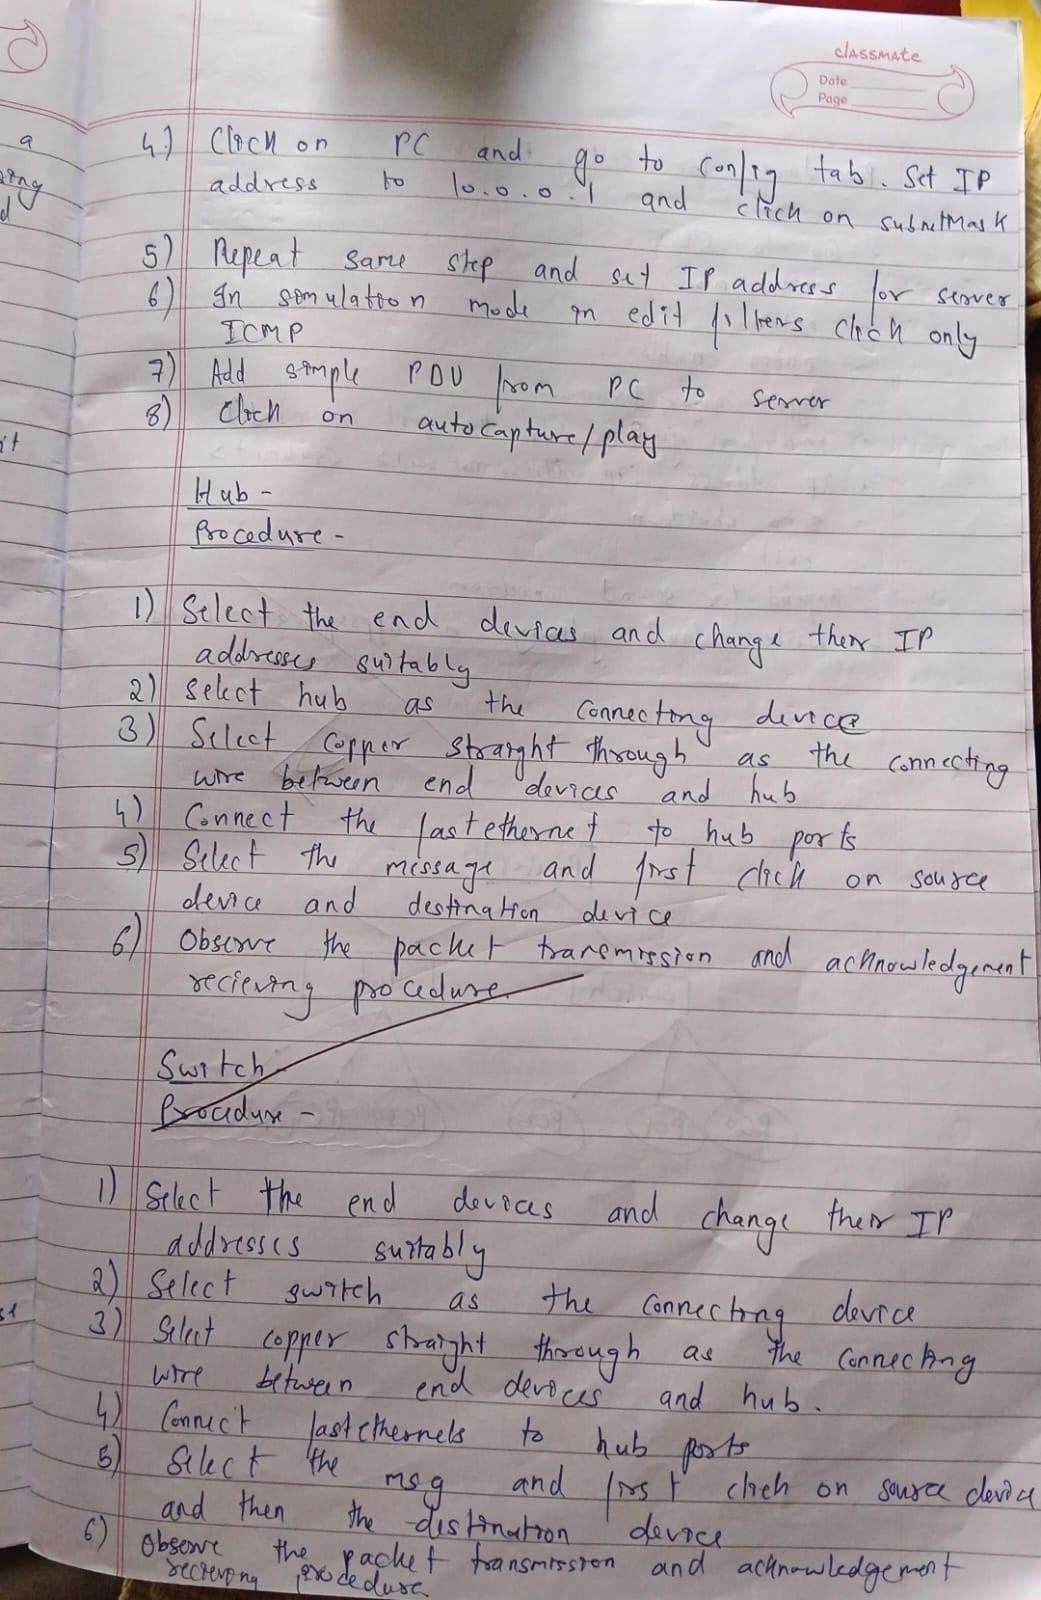 classmate
Date
Page
a
d
it
st
4.) Click on PC and go to config tab. Set IP
address to 10.0.0.1 and click on subnetMask
5) Repeat same step and set IP address for server
6) In simulation mode in edit filters click only
ICMP
7) Add simple PDU from PC to server
8) Click on autocapture/play
Hub -
Procedure -
1) Select the end devices and change their IP
addresses suitably
2) select hub as the connecting device
3) Select copper straight through as the connecting
wire between end devices and hub
4) Connect the fastethernet to hub ports
5) Select the message and first click on source
device and destination device
6) Observe the packet transmission and acknowledgement
recieving procedure.
Switch
Procedure -
1) Select the end devices and change their IP
addresses suitably
2) Select switch as the connecting device
3) Select copper straight through as the connecting
wire between end devices and hub.
4) Connect fastethernets to hub ports
5) Select the msg and first click on source device
and then the destination device
6) Observe the packet transmission and acknowledgement
recieving procedure